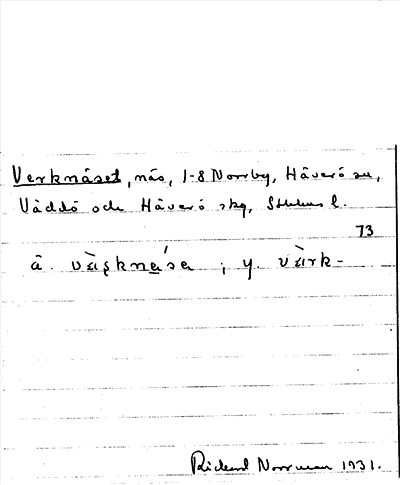 Verknäset, näs, 1-8 Norrby, Häverö sn,
Väddö och Häverö skg, Sthlms l.
73
ä. và̀ʂknásɐ ; y. và̀rk-
Rickard Norrman 1931.